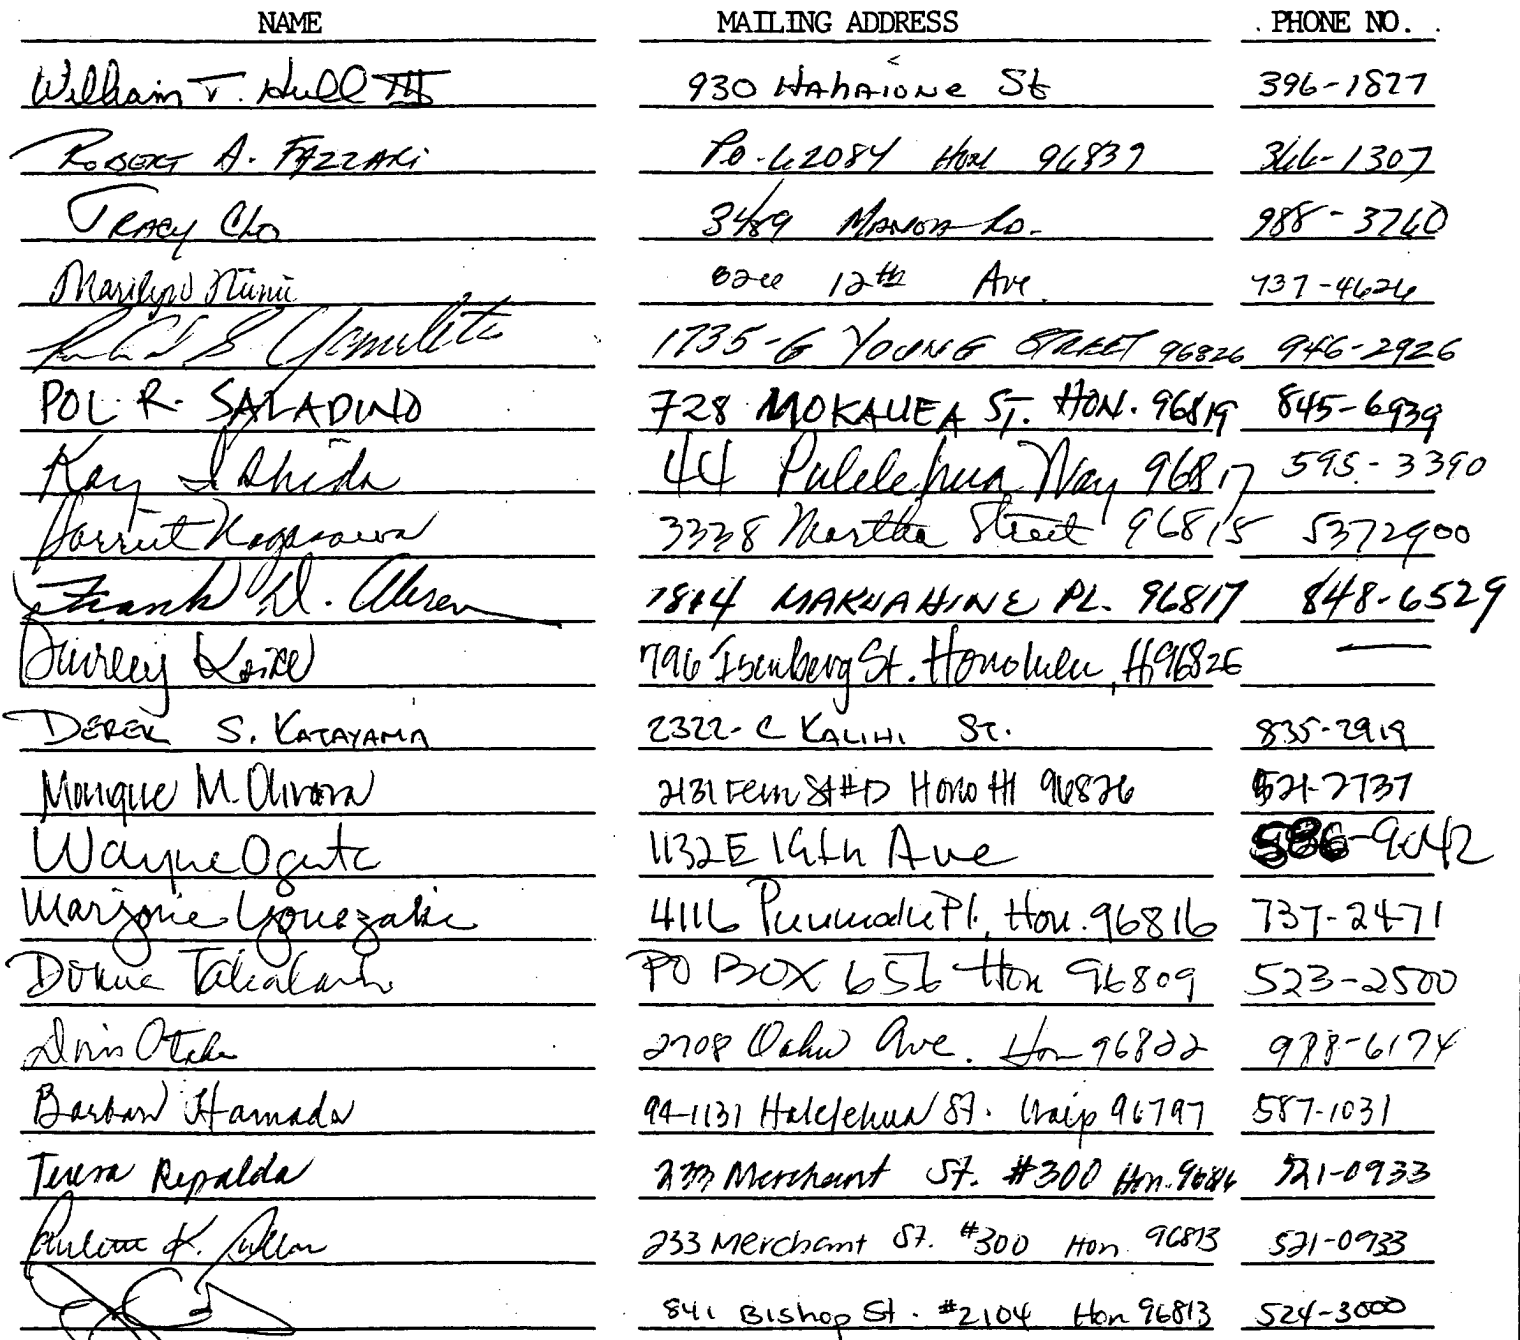 NAME MAILING ADDRESS PHONE NO.
William T. Hull III 930 HAHAIONE St 396-1827
ROBERT A. FAZZARI P.O. 62084 Hon 96839 366-1307
TRACY Cho 3489 MANOA Rd. 988-3760
Marilyn 12th Ave. 737-4626
1735-G YOUNG STREET 96826 946-2926
POL R. SALADINO 728 MOKAUEA ST. HON. 96819 845-6939
Kay Ishida 44 Pulelehua Way 96817 595-3390
Harriet Nagasawa 3338 Martha Street 96815 5372900
Frank D. 1804 MAKUAHINE PL. 96817 848-6529
Shirley 796 Isenberg St. Honolulu, Hi 96826
DEREK S. KATAYAMA 2322-C KALIHI ST. 835-2919
Monique M. 2131 Fern St #D Hono HI 96826 521-2737
Wayne Ogata 1132E 19th Ave 586-9042
Marjorie Yonezaki 4116 Pl., Hon. 96816 737-2471
Takahashi PO BOX 656 Hon 96809 523-2500
Doris Otake 2708 Oahu Ave. Hon 96822 988-6174
Barbara Hamada 94-1131 Halelehua St. Waip 96797 587-1031
Teresa Repalda 233 Merchant St. #300 Hon. 521-0933
K. 233 Merchant St. #300 Hon 96813 521-0933
841 Bishop St. #2104 Hon 96813 524-3000